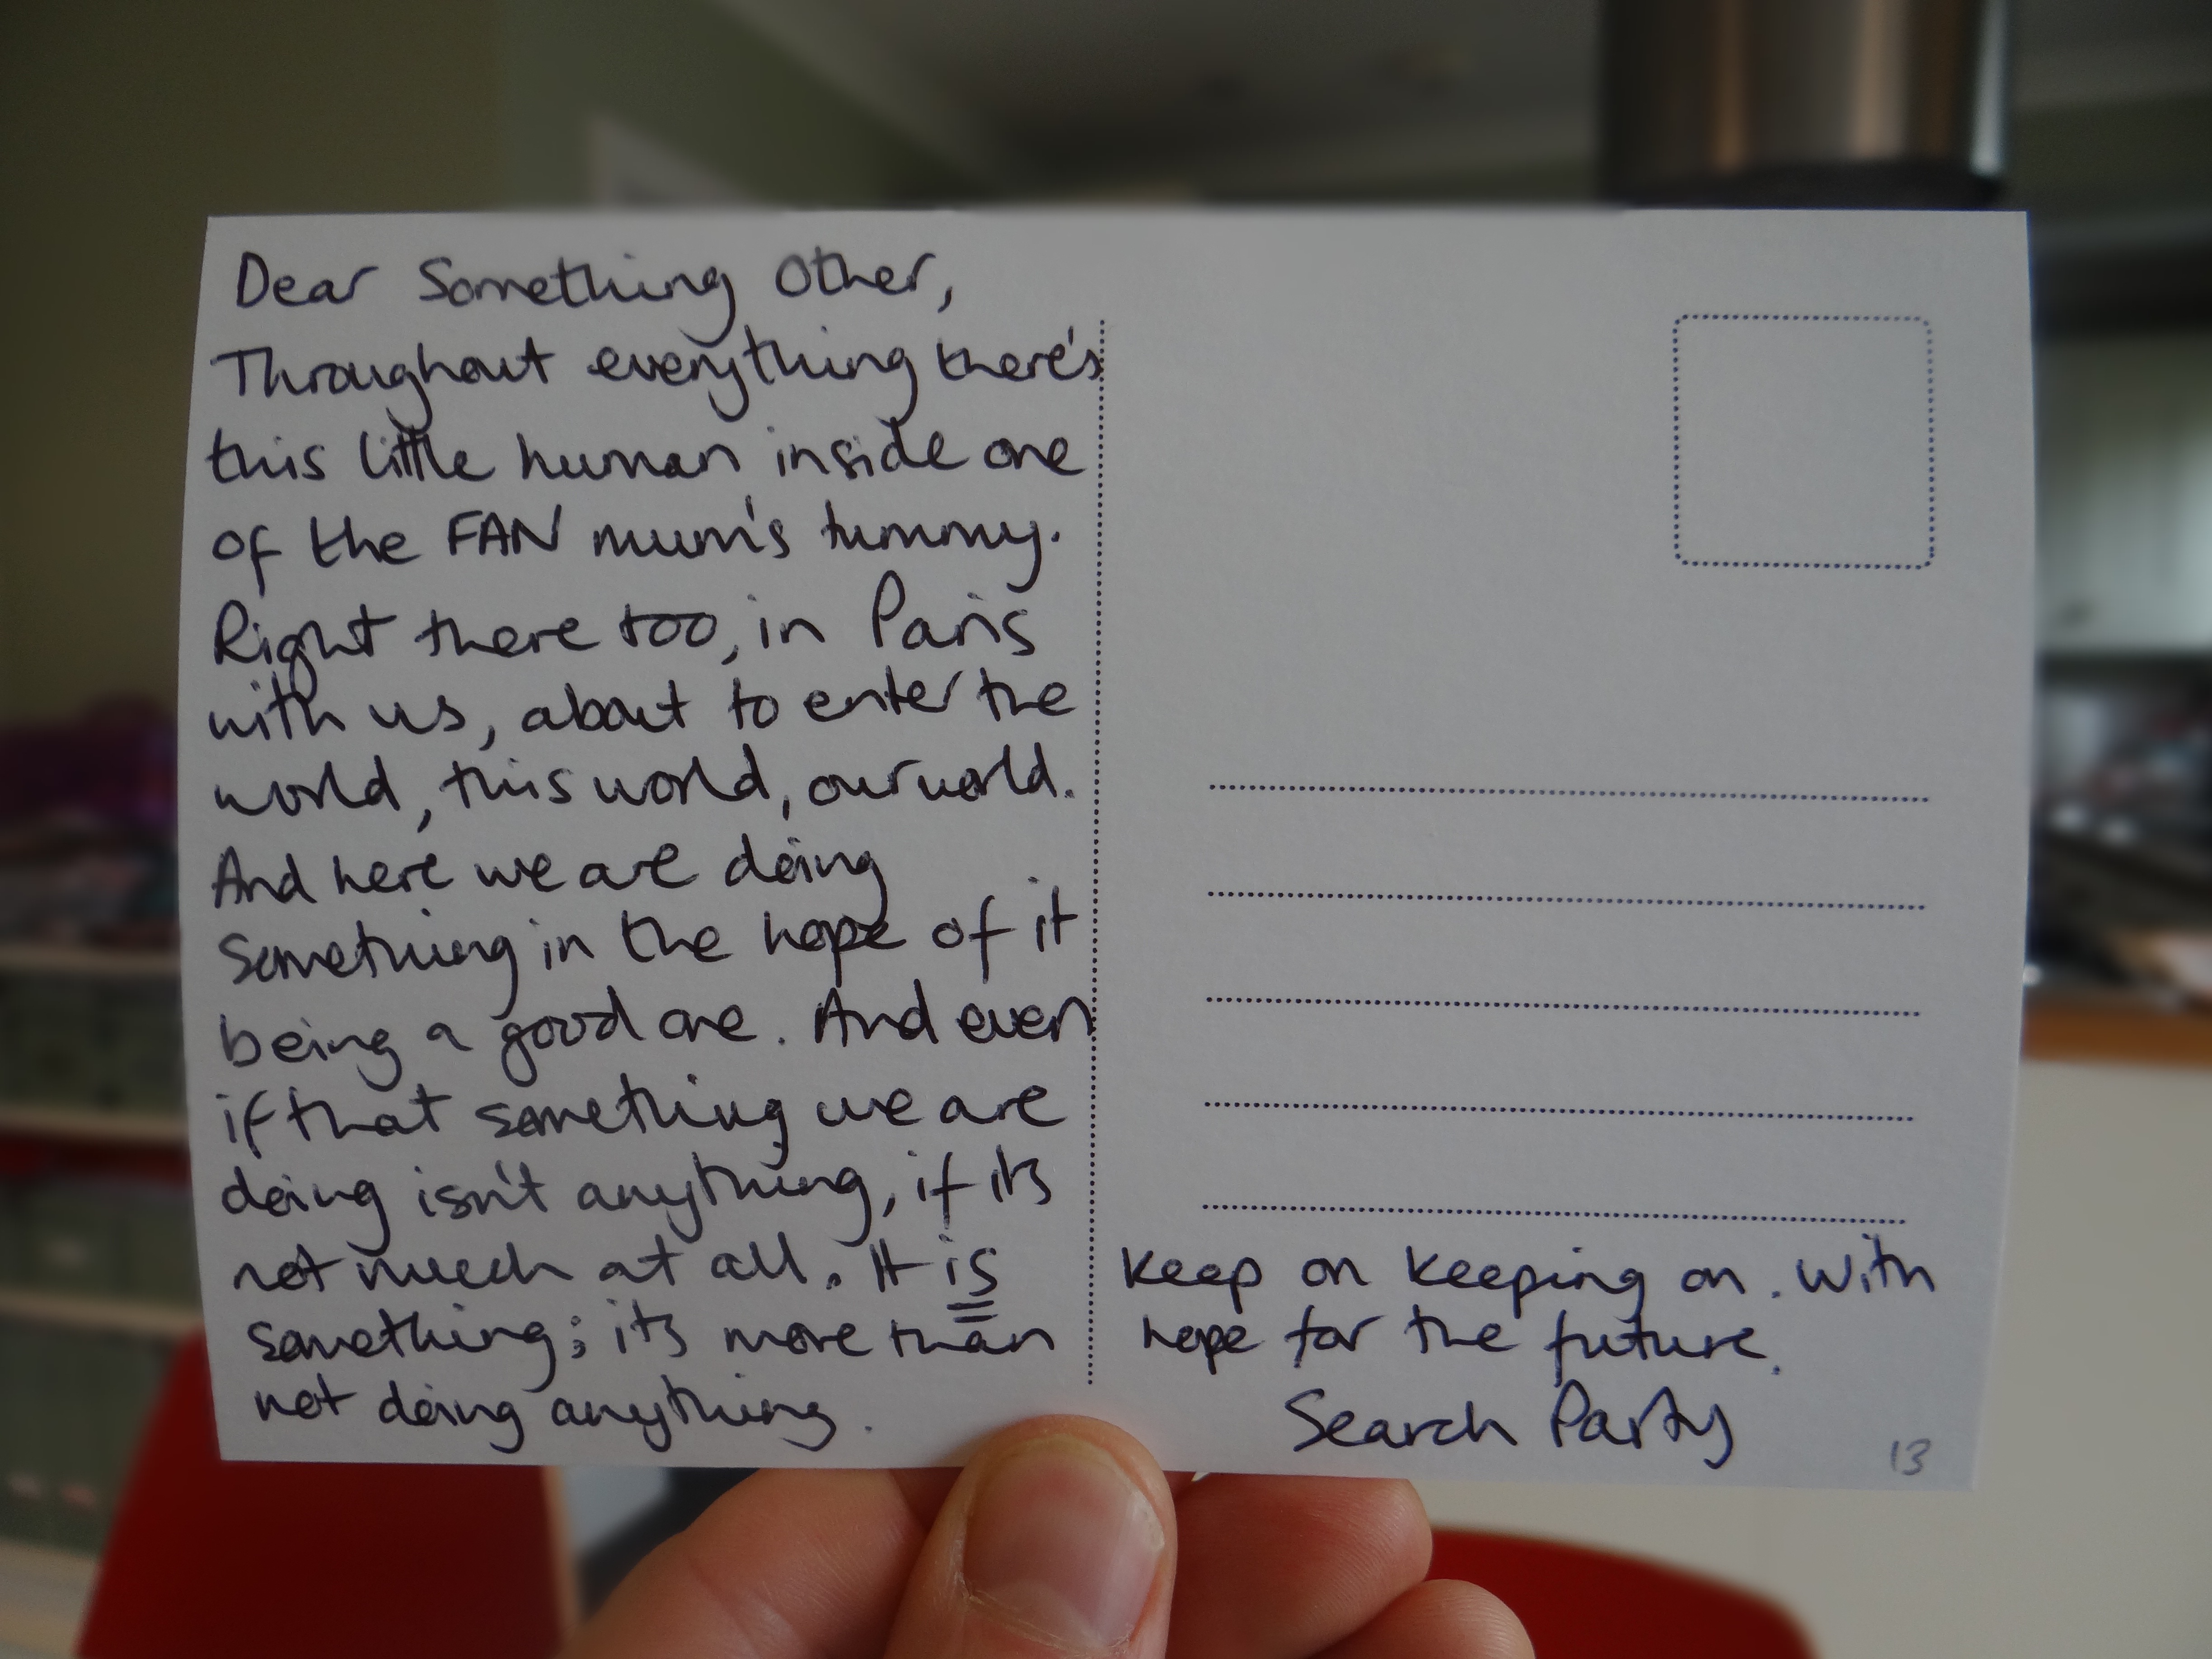 Dear Something Other,
Throughout everything there's
this little human inside one
of the FAN mum's tummy.
Right there too, in Paris
with us, about to enter the
world, this world, our world.
And here we are doing
something in the hope of it
being a good one. And even
if that something we are
doing isn't anything, if its
not much at all. It is
something; its more than
not doing anything.
Keep on keeping on. With
hope for the future.
Search Party
13